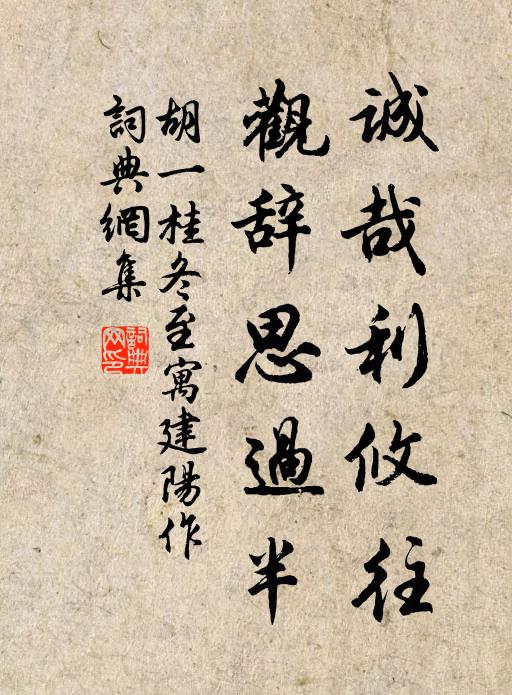 誠哉利攸往
觀辞思過半
胡一桂冬至寓建陽作
詞典網集
詞典网印